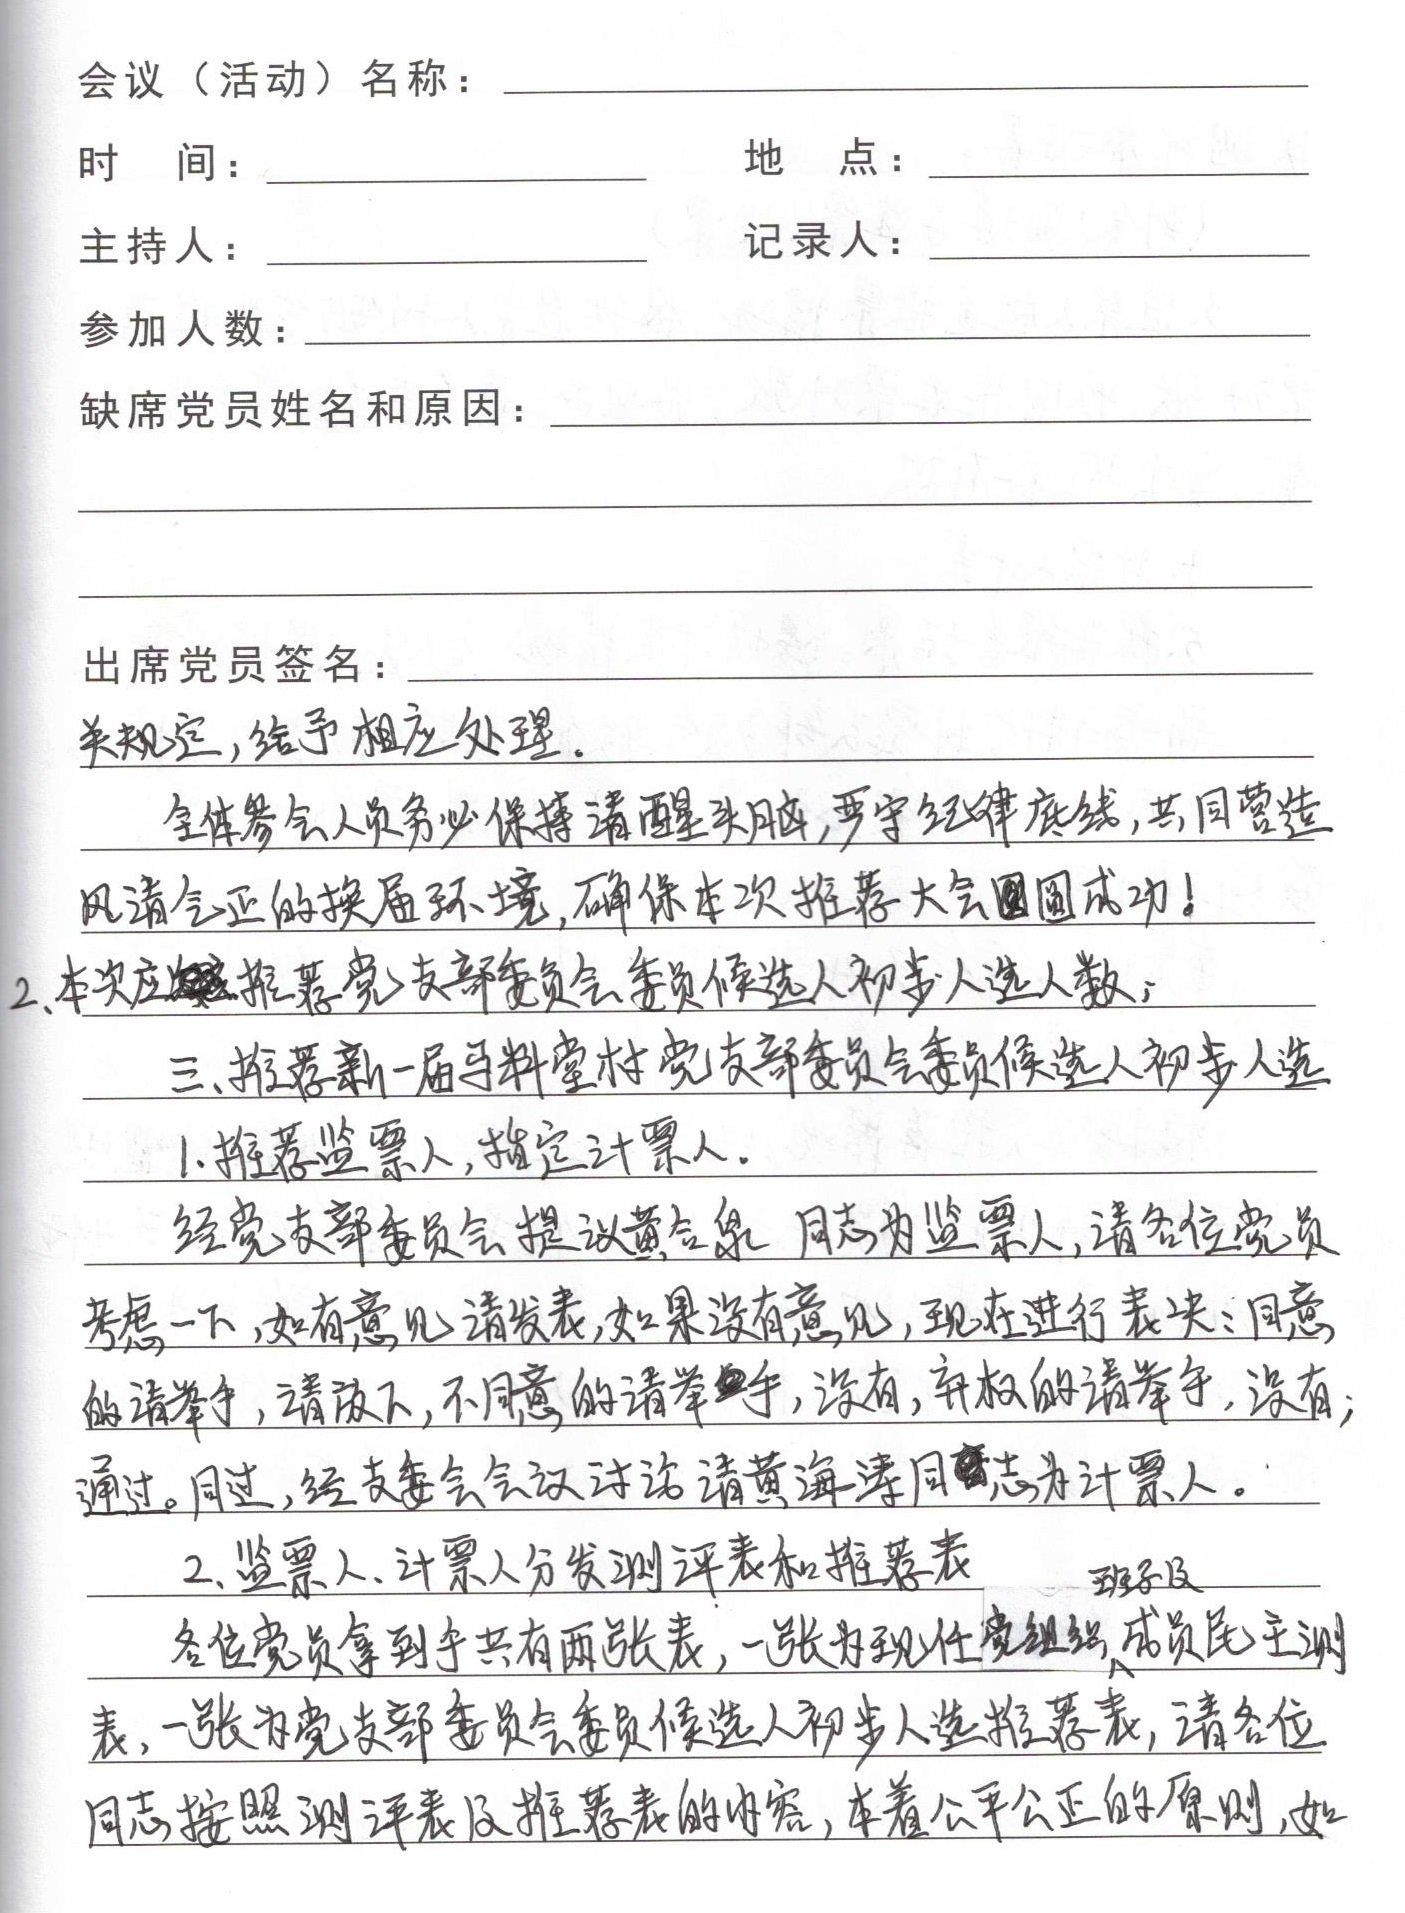 会议（活动）名称：
时　间：　　　　地　点：
主持人：　　　　记录人：
参加人数：
缺席党员姓名和原因：
出席党员签名：
关规定，给予相应处理。
全体参会人员务必保持清醒头脑，严守纪律底线，共同营造
风清气正的换届环境，确保本次推荐大会圆成功！
2、本次应推荐党支部委员会委员候选人初步人选人数；
三、推荐新一届马料堂村党支部委员会委员候选人初步人选
1、推荐监票人，指定计票人。
经党支部委员会提议黄合泉 同志为监票人，请各位党员
考虑一下，如有意见请发表，如果没有意见，现在进行表决：同意
的请举手，请放下，不同意的请举手，没有，弃权的请举手，没有；
通过。同过，经支委会会议讨论请黄海涛同志为计票人。
2、监票人、计票人分发测评表和推荐表
班子及
各位党员拿到手共有两张表，一张为现任党组织成员民主测
表，一张为党支部委员会委员候选人初步人选推荐表，请各位
同志按照测评表及推荐表的内容，本着公平公正的原则，如